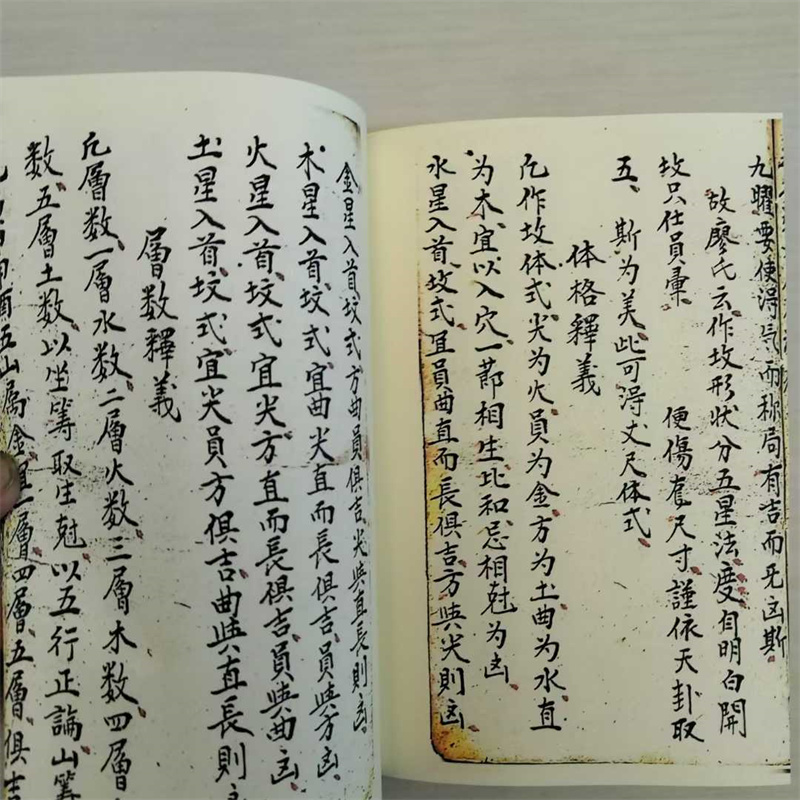 九曜要使得气而称局有吉而旡凶斯
故廖氏云作坟形状分五星法度自明白開
坟只仕員彙 便傷在尺寸謹依天卦取
五、斯为美此可得丈尺体式
体格釋義
凢作坟体式尖为火員为金方为土曲为水直
为木宜以入穴一節相生比和忌相尅为凶
水星入首坟式宜員曲直而長俱吉方與尖則凶
金星入首坟式方曲員俱吉尖與直長則凶
木星入首坟式宜曲尖直而長俱吉員與方凶
火星入首坟式宜尖方直而長俱吉員與曲凶
土星入首坟式宜尖員方俱吉曲與直長則
層数釋義
凢層数一層水数二層火数三層木数四層
数五層土数以坐筭取生尅以五行正論山筭
酉五山属金宜一層四層五層俱吉